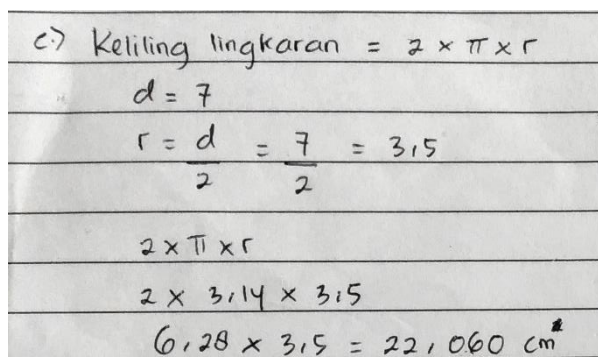 c.) Keliling lingkaran = 2 x π x r
d = 7
r = d/2 = 7/2 = 3,5
2 x π x r
2 x 3,14 x 3,5
6,28 x 3,5 = 22,060 cm